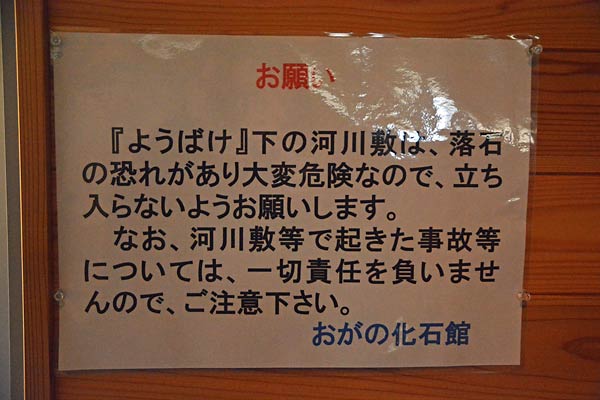 お願い
『ようばけ』下の河川敷は、落石
の恐れがあり大変危険なので、立ち
入らないようお願いします。
なお、河川敷等で起きた事故等
については、一切責任を負いませ
んので、ご注意下さい。
おがの化石館